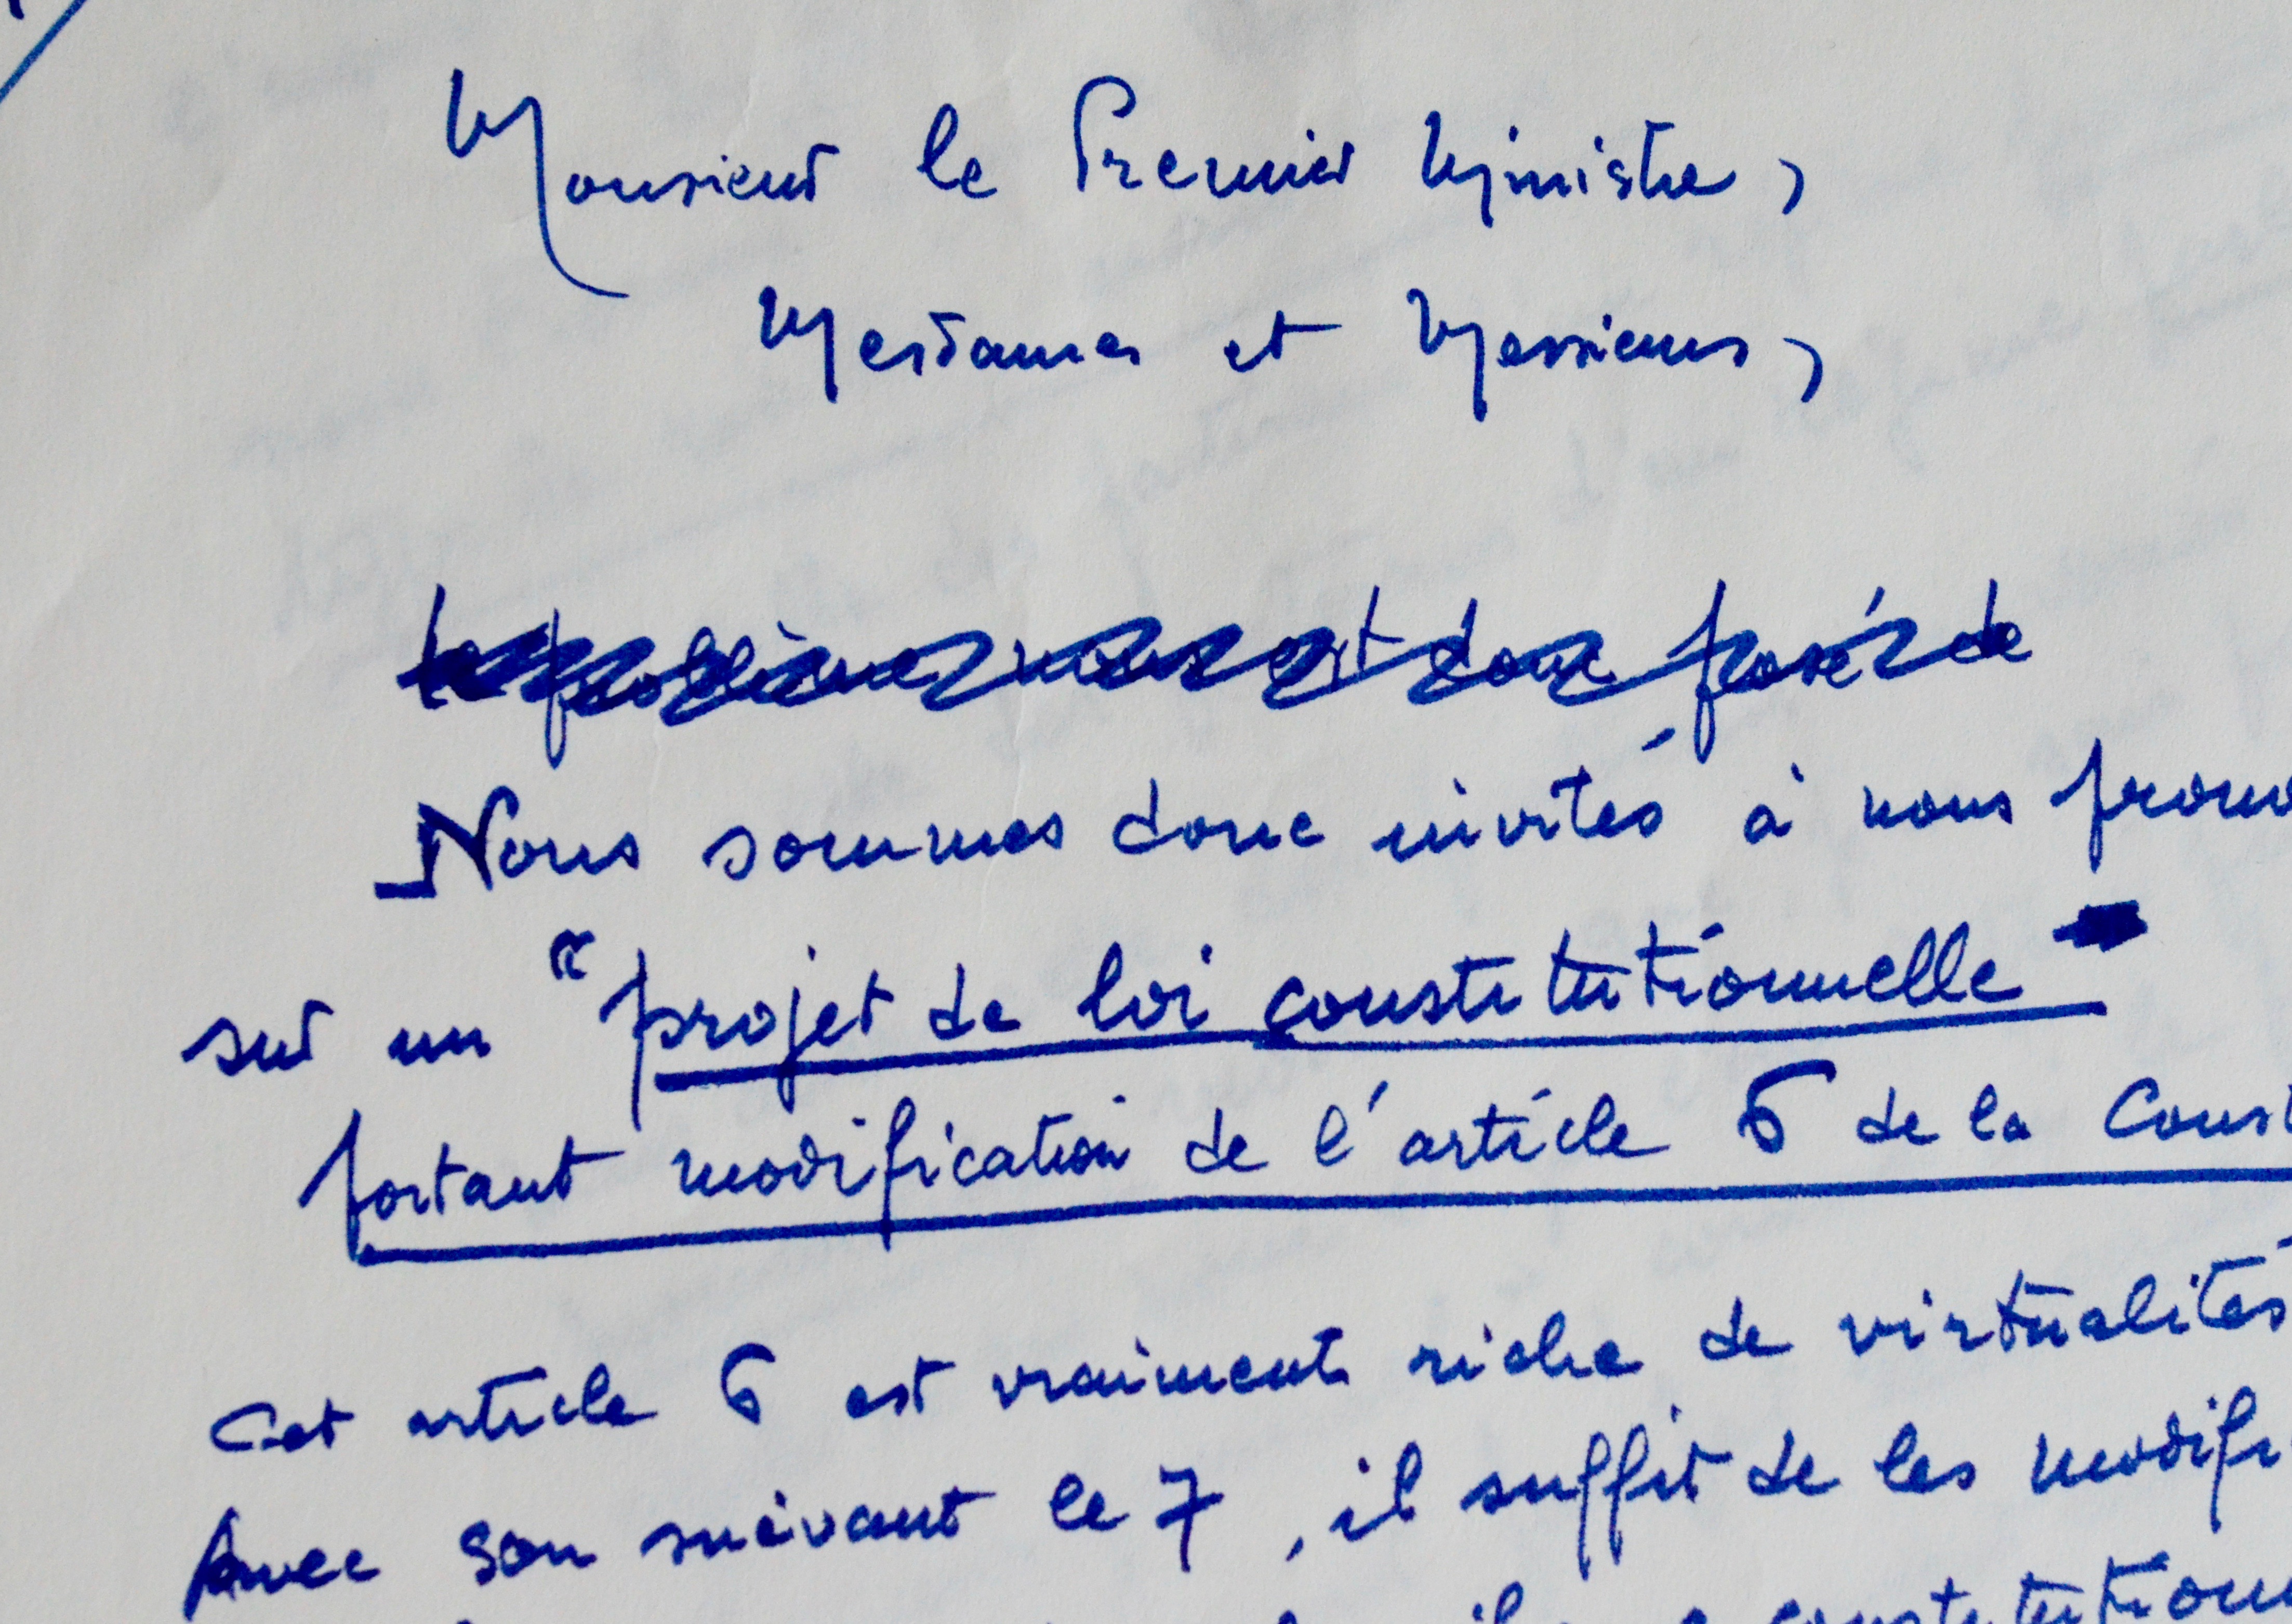 Monsieur le Premier Ministre,
Mesdames et Messieurs,
Le problème nous est donc posé de
Nous sommes donc invités à nous prono
sur un "projet de loi constitutionnelle
portant modification de l'article 6 de la Const
Cet article 6 est vraiment riche de virtualités
Avec son suivant le 7, il suffit de les modifi
il constitution